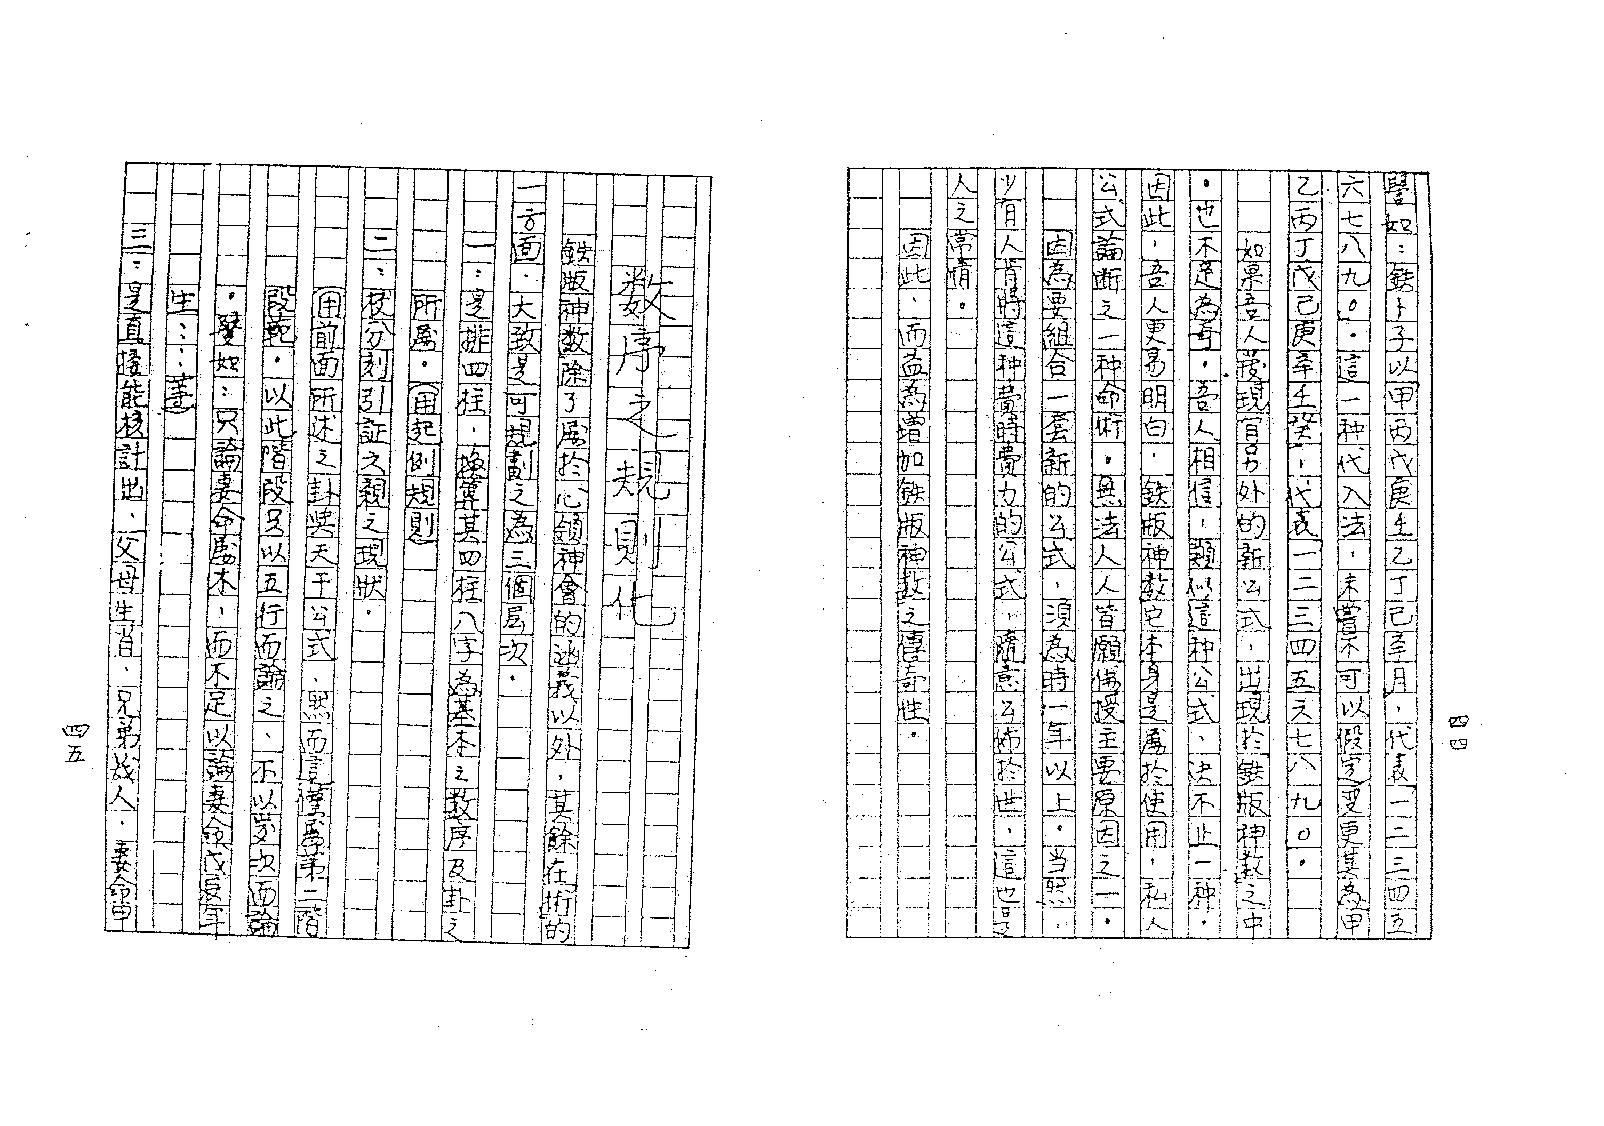 譬如：鉄卜子以甲丙戊庚壬乙丁己辛月，代表一二三四五
六七八九〇。這一种代入法，未嘗不可以假定变更其為甲
乙丙丁戊己更辛壬癸，代表一二三四五六七八九〇。
如果吾人發現有另外的新公式，出現於鉄版神数之中
，也不足為奇。吾人相信，類似這种公式，決不止一种。
因此，吾人更易明白，鉄版神数它本身是屬於使用，私人
公式論断之一种命術。無法人人皆願傳授主要原因之一。
因為要組合一套新的公式，須為時一年以上。当然，
少有人肯將這种費時費力的公式，隨意公佈於世，這也是
人之常情。
因此，而益為增加鉄版神数之傳奇性。
四四
数序之規則化
鉄版神数除了屬於心領神會的涵義以外，其餘在術的
一方面，大致是可規劃之為三個层次。
一：是排四柱，換算其四柱八字為基本之数序及卦之
所屬。（用起例規則）
二：校分刻引証之親之現狀。
（用前面所述之卦與天干公式，然而這僅屬第二階
段範。以此階段足以五行而論之，不以岁次而論
。譬如：只論妻命屬木，而不足以論妻命戊辰年
生：：等）
三：是直接能核計出，父母生肖，兄弟幾人，妻命甲
四五